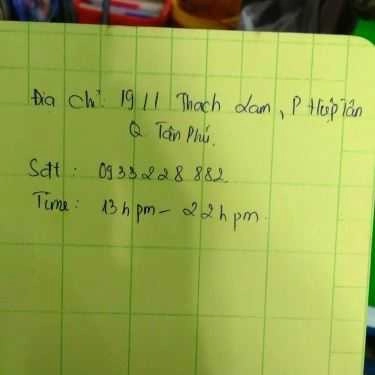 Địa chỉ: 19 11 Thạch Lam, P Hiệp Tân
Q Tân Phú.
Sđt: 0933228 882
Time: 13h pm - 22h pm.